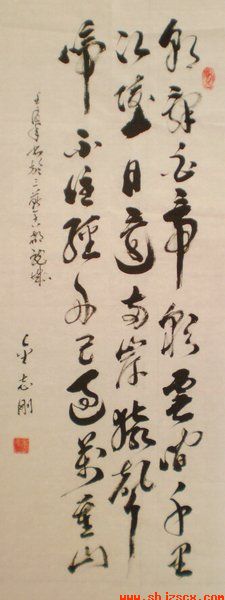 朝辞白帝彩雲間千里
江陵一日還两岸猿声
啼不住輕舟已過萬重山
志刚
www.shjzscx.com